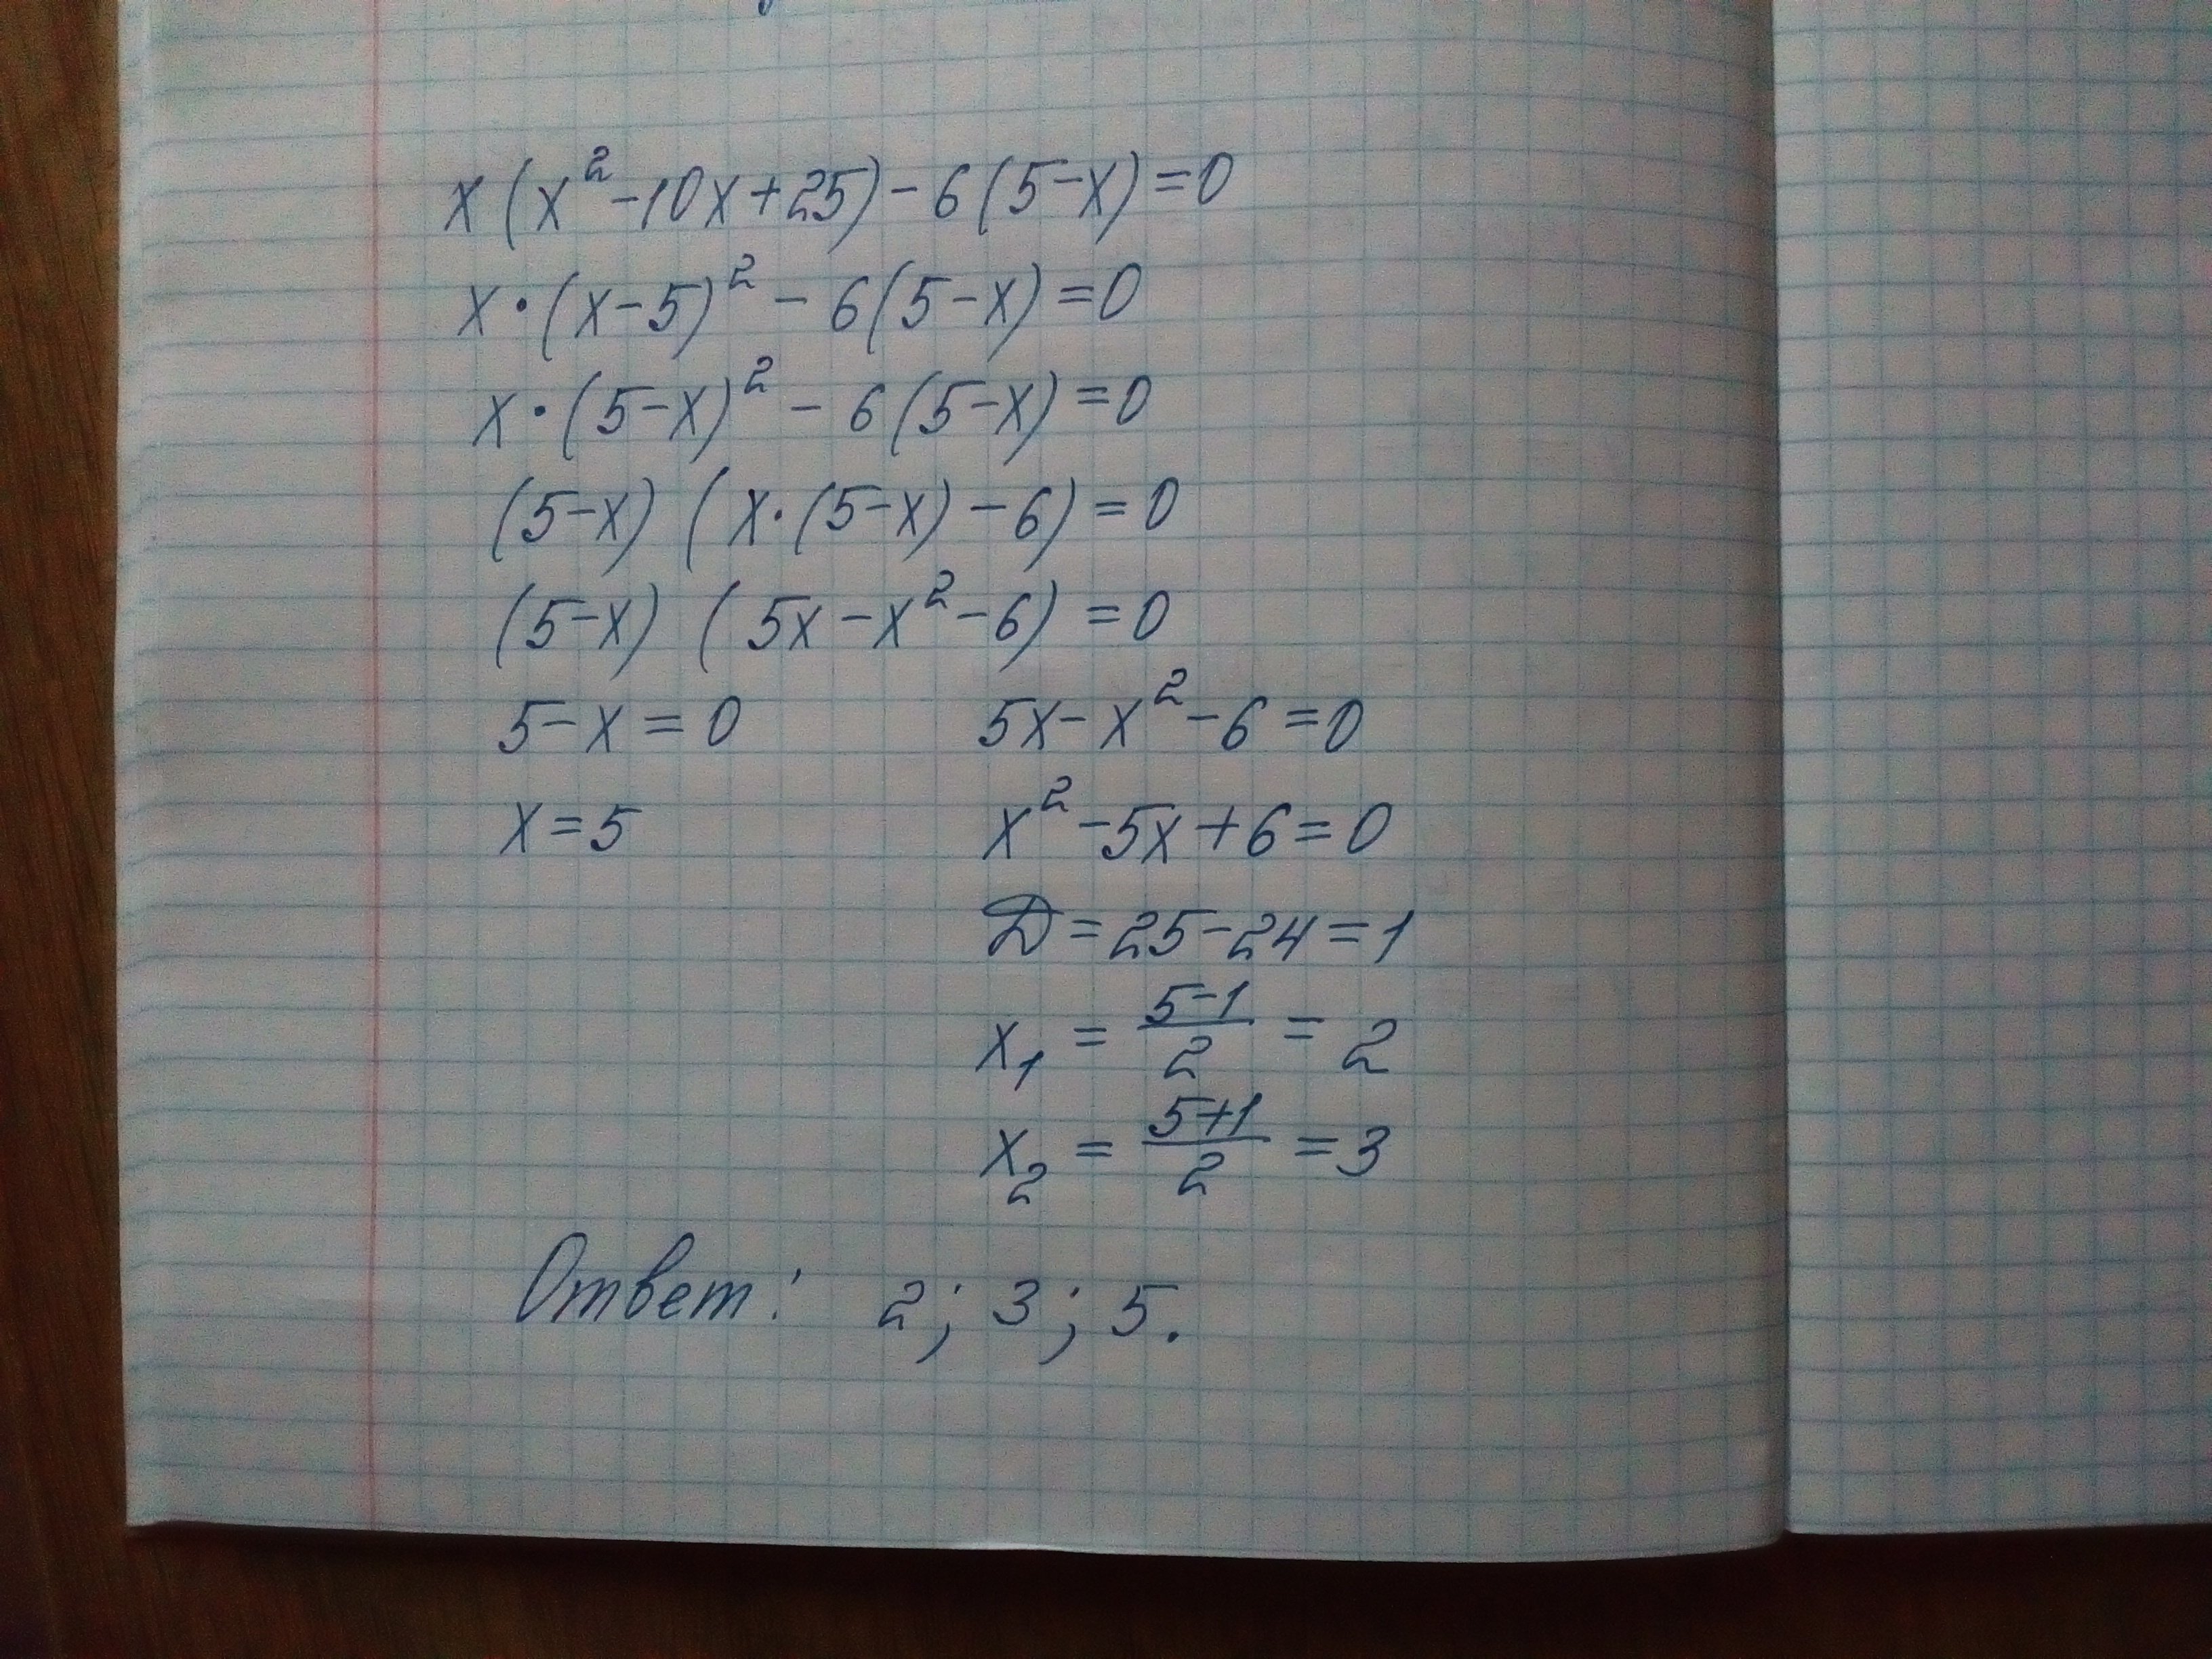 x(x²-10x+25)-6(5-x)=0
x·(x-5)²-6(5-x)=0
x·(5-x)²-6(5-x)=0
(5-x)(x·(5-x)-6)=0
(5-x)(5x-x²-6)=0
5-x=0 5x-x²-6=0
x=5 x²-5x+6=0
D=25-24=1
x₁=(5-1)/2=2
x₂=(5+1)/2=3
Ответ: 2; 3; 5.